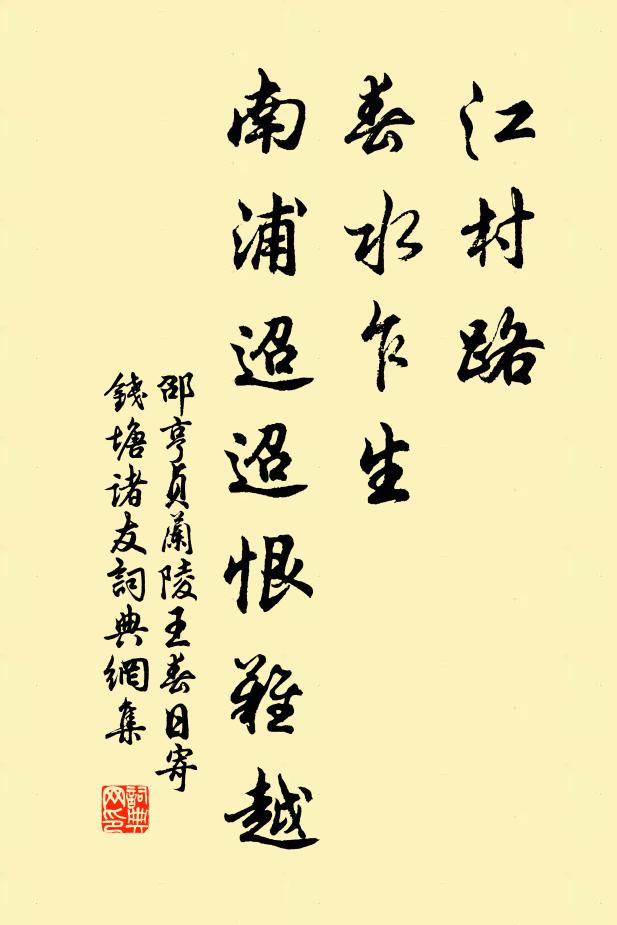 江村路
春水乍生
南浦迢迢恨難越
邵亨貞蘭陵王春日寄
錢塘諸友詞典網集
詞典网印